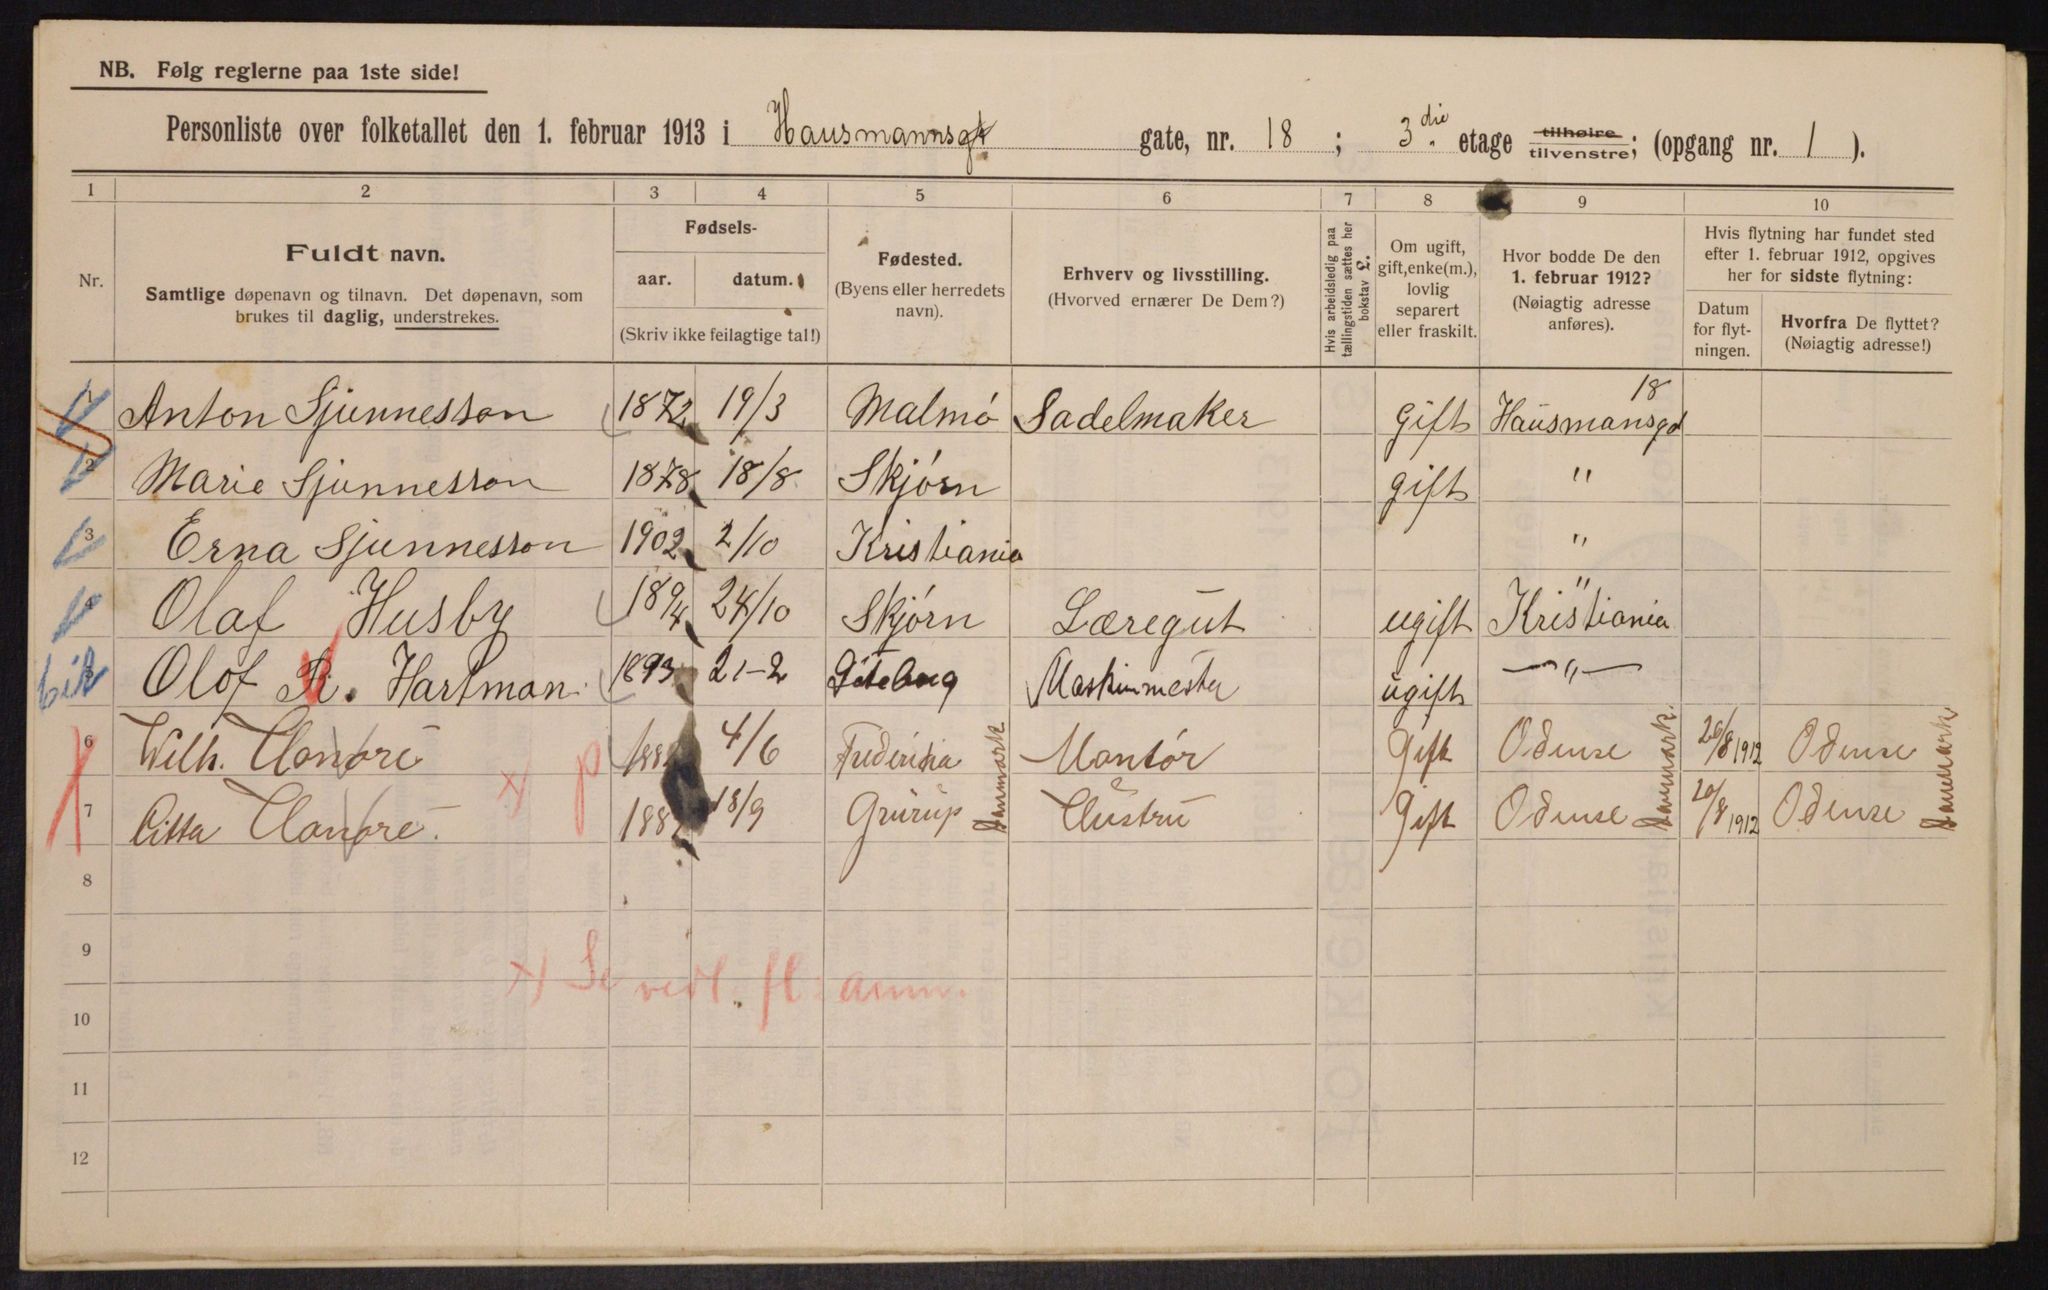 NB. Følg reglerne paa 1ste side!
Personliste over folketallet den 1. februar 1913 i Hausmannsgt gate, nr. 18; 3die etage tilhøire tilvenstre; (opgang nr. 1).
1 2 3 4 5 6 7 8 9 10
Nr.
Fuldt navn.
Samtlige døpenavn og tilnavn. Det døpenavn, som
brukes til daglig, understrekes.
Fødsels-
aar. datum.
(Skriv ikke feilagtige tal!)
Fødested.
(Byens eller herredets
navn).
Erhverv og livsstilling.
(Hvorved ernærer De Dem?)
Hvis arbeidsledig paa
tællingstiden sættes her
bokstav L.
Om ugift,
gift, enke(m.),
lovlig
separert
eller fraskilt.
Hvor bodde De den
1. februar 1912?
(Nøiagtig adresse
anføres).
Hvis flytning har fundet sted
efter 1. februar 1912, opgives
her for sidste flytning:
Datum
for flyt-
ningen.
Hvorfra De flyttet?
(Nøiagtig adresse!)
1 Anton Sjunnesson 1872 19/3 Malmó Sadelmaker gift Hausmansgd 18
2 Marie Sjunnesson 1878 18/8 Skjórn gift "
3 Erna Sjunnesson 1902 2/10 Kristiania "
4 Olaf Husby 1894 24/10 Skjórn Læregut ugift Kristiania "
5 Olof R. Hartman 1893 21-2 Göteborg Maskinmester ugift — " —
6 Wilh. 4/6 Fredericia Danmark Montór Gift Odense Danmark. 20/8 1912 Odense Danmark
7 18/9 Hustru Gift Odense 20/8 1912 Odense
8
9
x) Se vedl. fl. anm.
10
11
12